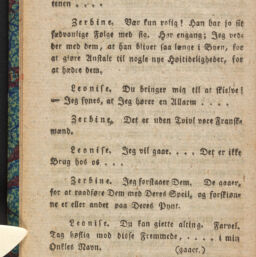 renen . . . .
Zerbine. Vær kun rolig! Han har jo sit
sædvanlige Følge med sig. Hør engang; Jeg ved-
der med dem, at han bliver saa længe i Byen, for
at giøre Anstalt til nogle nye Høitideligheder, for
at hædre dem.
Leonise. Du bringer mig til at skielve!
— Jeg synes, at Jeg hører en Allarm . . . .
Zerbine. Det er uden Tvivl vore Franske-
mænd.
Leonise. Jeg vil gaae. . . . Det er ikke
Brug hos os . . .
Zerbine. Jeg forstaaer Dem. De gaaer,
for at raadføre Dem med Deres Speil, og forskiøn-
ne et eller andet paa Deres Pynt.
Leonise. Du kan giette alting. Farvel.
Tag høflig mod disse Fremmede, . . . . i min
Onkles Navn. (gaaer.)